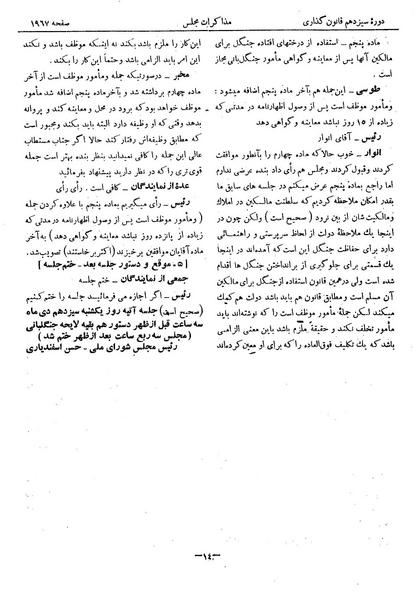 دورهٔ سیزدهم قانون گذاری
مذاکرات مجلس
صفحه ۱۹۶۷
ماده پنجم - استفاده از درختهای افتاده جنگل برای
مالکین آنها پس از معاینه و گواهی مأمور جنگل‌بانی مجاز
است.
طوسی - این جمله هم بآخر ماده پنجم اضافه میشود:
و مأمور موظف است پس از وصول اظهارنامه در مدتی که
زیاده از ۱۵ روز نباشد معاینه و گواهی دهد
رئیس - آقای انوار
انوار - خوب حالا که ماده چهارم را بآنطور موافقت
کردند وقبول کردند ومجلس هم رأی داد بنده عرضی ندارم
اما راجع بماده پنجم عرض میکنم در جلسه های سابق ما
بقدر امکان ملاحظه کردیم که سلطنت مالکین در املاك
ومالکیت شان از بین نرود (صحیح است) ولکن چون در
اینجا یك قسمت ملاحظهٔ دولت از لحاظ سرپرستی و راهنمائی
دارد برای حفاظت جنگل این است که آمده‌اند در اینجا
یك قسمتی برای جلوگیری از برانداختن جنگل ها اقدام
شده است ولی درهمین قانون استفاده ازجنگل برای مالکین
آن مسلم است و مطابق قانون هم باید باشد دولت هم کومك
میکند لکن جملهٔ مأمور موظف است را که نوشته‌اند باید
مأمور تخلف نکند و حقیقةً ملزم باشد باین معنی الزامی
باشد که یك تکلیف فوق‌العاده را که برای او معین کرده‌اند
این کار را ملزم باشد بکند نه اینکه موظف باشد و نکند
این باید الزامی باشد وحتماً این کار را بکند
مخبر - درصورتیکه جمله ومأمور موظف است بعد
بآخر ماده چهارم برداشته شد و بآخر ماده پنجم اضافه شد مأمور
موظف خواهد بود که برود در محل و معاینه کند و پروانه
بدهد وقتی که او وظیفه دارد البته باید بکند ومجبور است
که مطابق وظیفه‌اش رفتار کند حالا اگر جناب مستطاب
عالی این جمله را کافی نمیدانید بنظر بنده بهتر است جمله
قوی تری را که در نظر دارید پیشنهاد بفرمائید
عدهٔ از نمایندگان - کافی است . رأی رأی
رئیس - رأی میگیریم بماده پنجم با علاوه کردن جمله
(ومأمور موظف است پس از وصول اظهارنامه در مدتی که
زیاده از پانزده روز نباشد معاینه و گواهی دهد) به‌آخر
ماده آقایان موافقین برخیزند (اکثر برخاستند) تصویب شد.
[۵ - موقع و دستور جلسه بعد - ختم جلسه]
جمعی از نمایندگان - ختم جلسه
رئیس - اگر اجازه می فرمائید جلسه را ختم کنیم
(صحیح است) جلسه آتیه روز یکشنبه سیزدهم دی ماه
سه ساعت قبل ازظهر دستور هم بقیه لایحه جنگلبانی
(مجلس سه ربع ساعت بعد ازظهر ختم شد)
رئیس مجلس شورای ملی - حسن اسفندیاری
—۱۴—